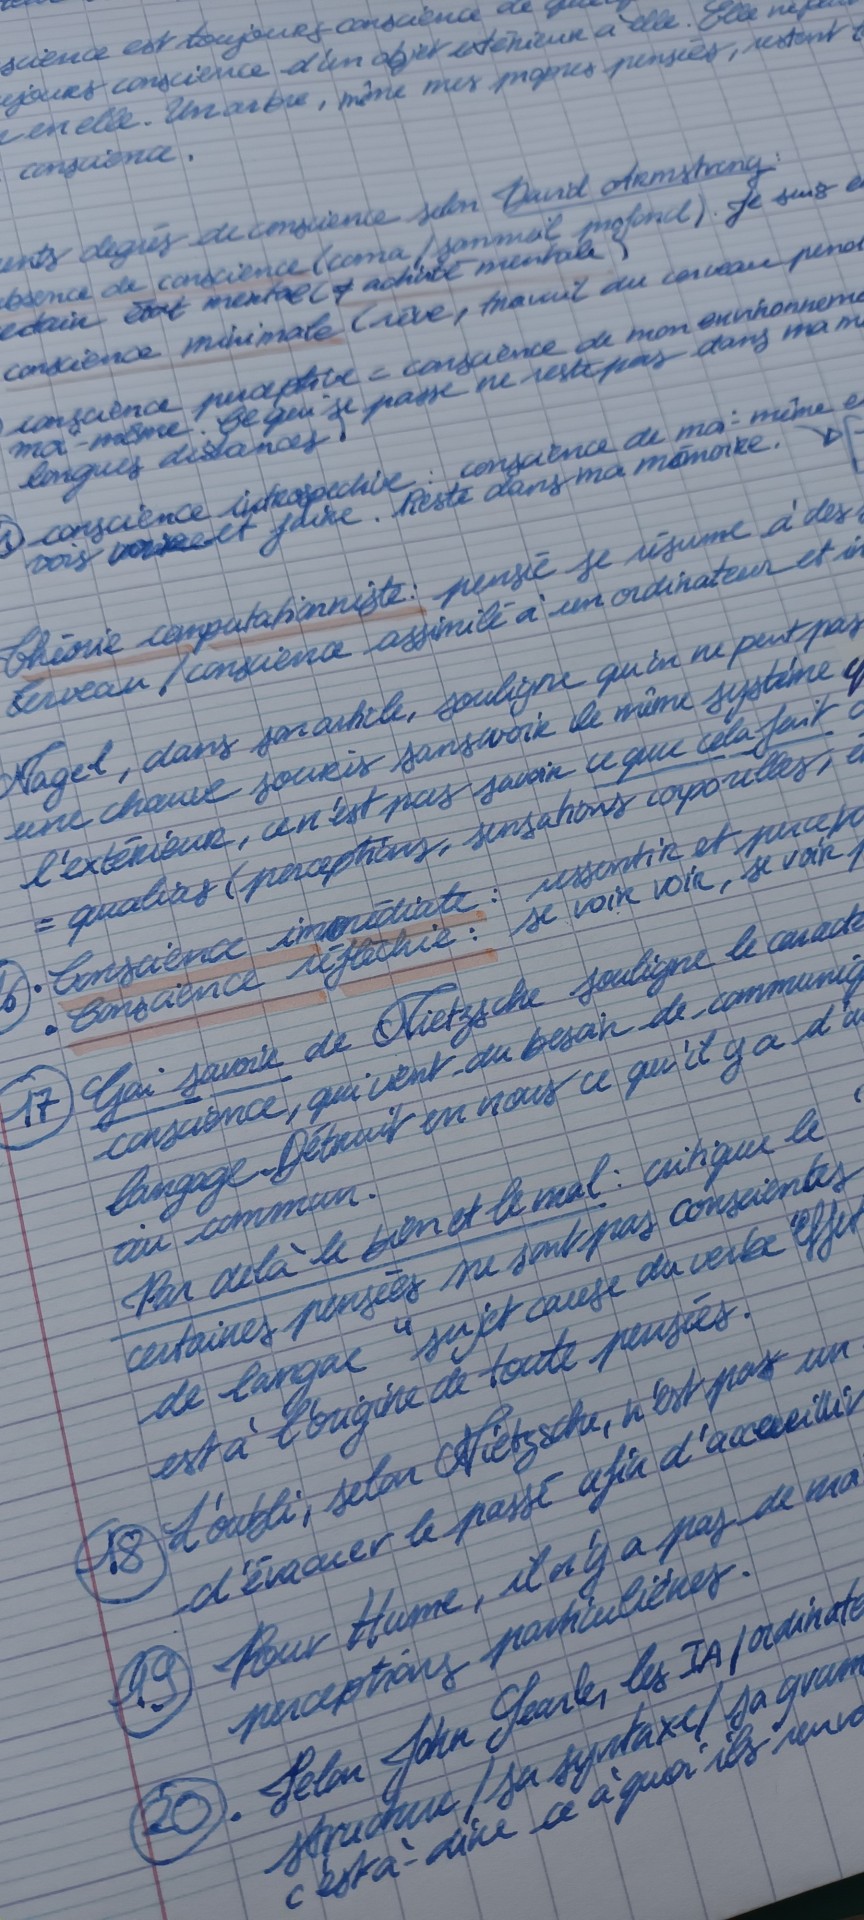 conscience est toujours conscience de
toujours conscience d'un objet extérieur à elle. Elle
en elle. Un arbre, même mes propres pensées, restent
conscience.
degrés de conscience selon David Armstrong :
absence de conscience (coma / sommeil profond). Je suis
certain état mental (≠ activité mentale)
conscience minimale (rêve, travail du cerveau
conscience perceptive = conscience de mon environnement
moi-même. Ce qui se passe ne reste pas dans ma
longues distances)
conscience introspective : conscience de moi-même
vois et faire. Reste dans ma mémoire.
Théorie computationniste : pensée se résume à des
cerveau / conscience assimilé à un ordinateur et
Nagel, dans son article, souligne qu'on ne peut pas
une chauve souris sans avoir le même système
l'extérieur, ce n'est pas savoir ce que cela fait
= qualias (perceptions, sensations corporelles,
16. Conscience immédiate : ressentir et
. Conscience réfléchie : se voir voir, se voir
17 Gai savoir de Nietzsche souligne le
conscience, qui vient du besoin de
langage. Détruit en nous ce qu'il y a
au commun.
Par delà le bien et le mal : critique le "
certaines pensées ne sont pas conscientes
de langae " sujet cause du verbe
est à l'origine de toute pensées.
18 L'oubli, selon Nietzsche, n'est pas un
d'évacuer le passé afin d'accueillir
19 Pour Hume, il n'y a pas de
perceptions particulières.
20. Selon John Searle, les IA /
structure / sa syntaxe / sa
c'est à-dire ce à quoi ils